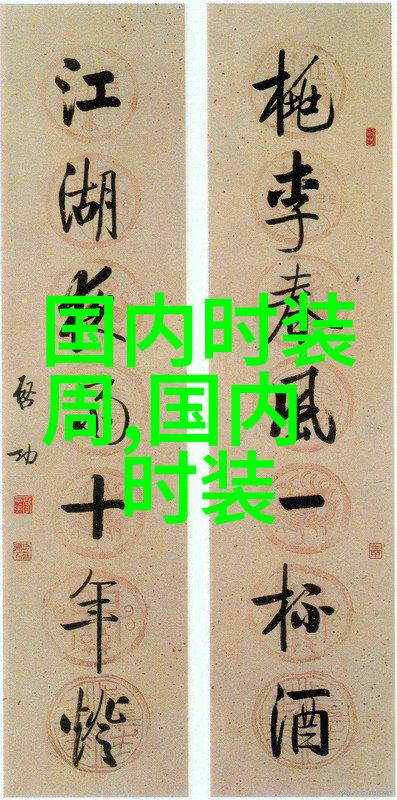 桃李春風一杯酒
江湖夜雨十年燈
啓功
国内时装
周,国内
时装